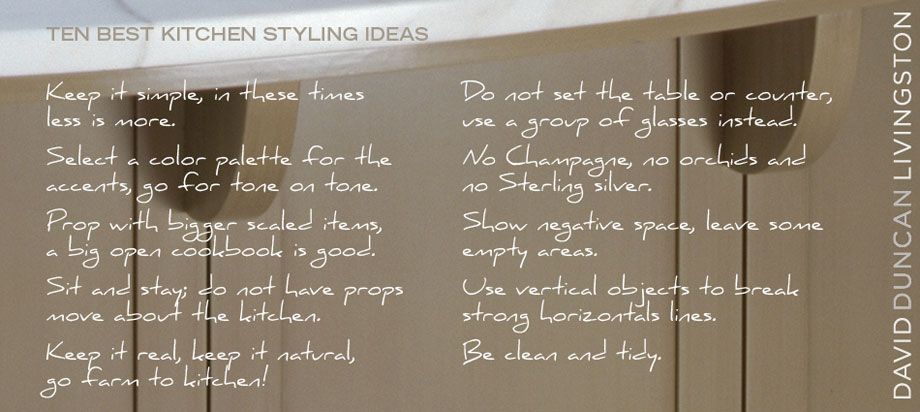 TEN BEST KITCHEN STYLING IDEAS
Keep it simple, in these times
less is more.
Select a color palette for the
accents, go for tone on tone.
Prop with bigger scaled items,
a big open cookbook is good.
Sit and stay; do not have props
move about the kitchen.
Keep it real, keep it natural,
go farm to kitchen!
Do not set the table or counter,
use a group of glasses instead.
No Champagne, no orchids and
no Sterling silver.
Show negative space, leave some
empty areas.
Use vertical objects to break
strong horizontals lines.
Be clean and tidy.
DAVID DUNCAN LIVINGSTON